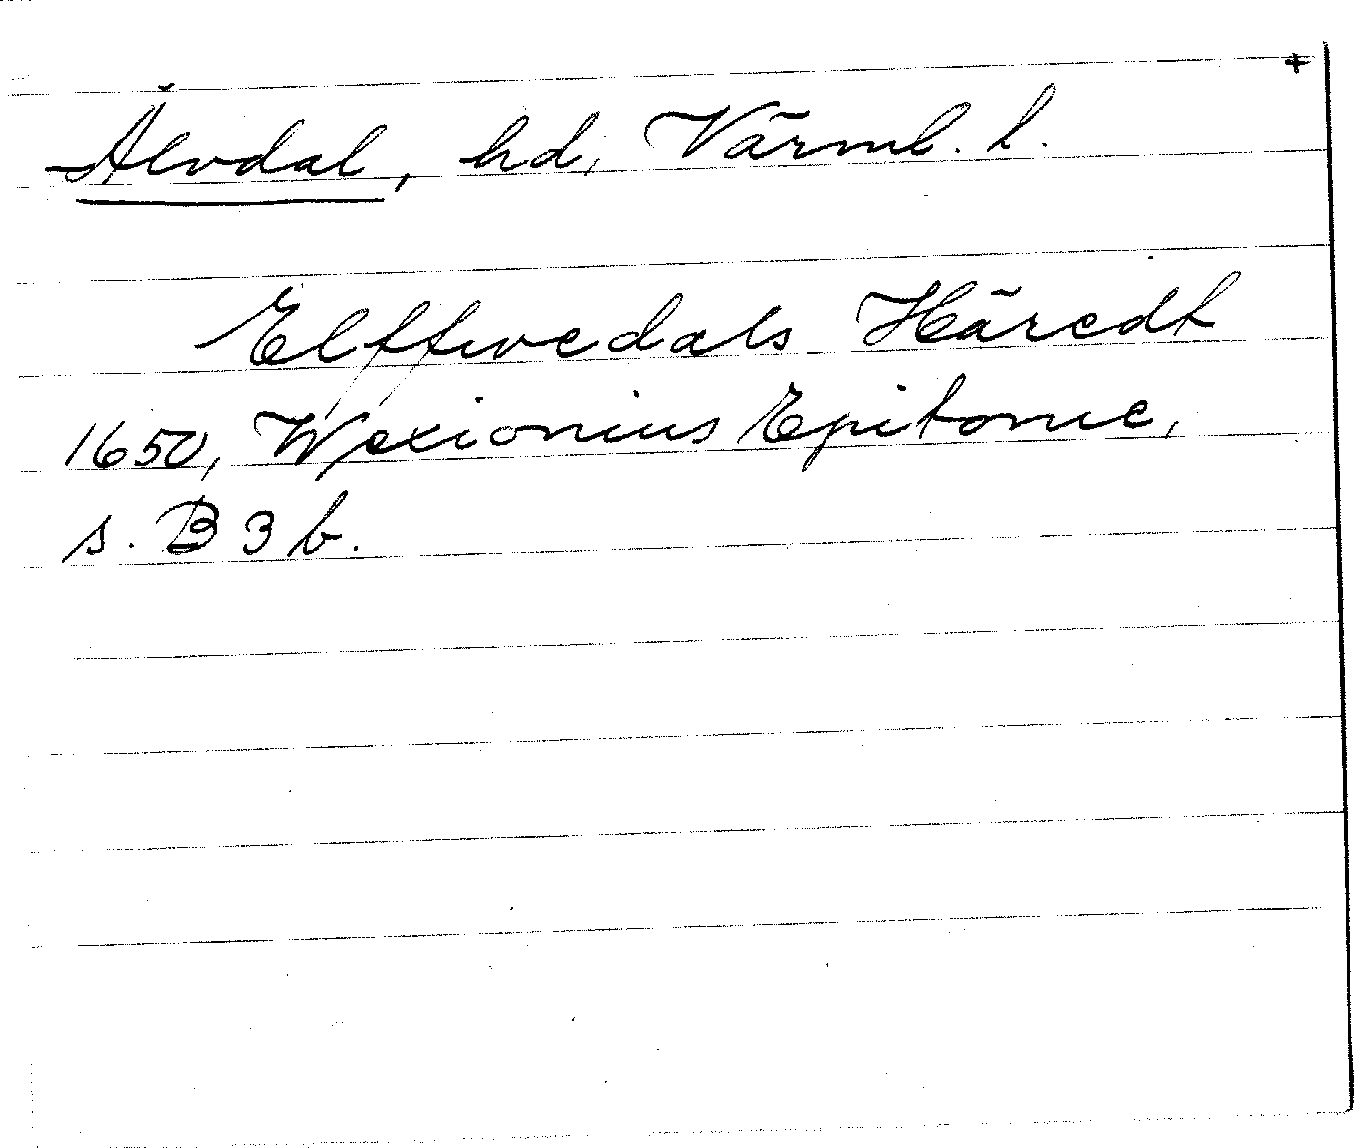 +
Älvdal, hd, Värml. l.
Elffwedals Häredt
1650, Wexionius Epitome,
s. B 3 b.